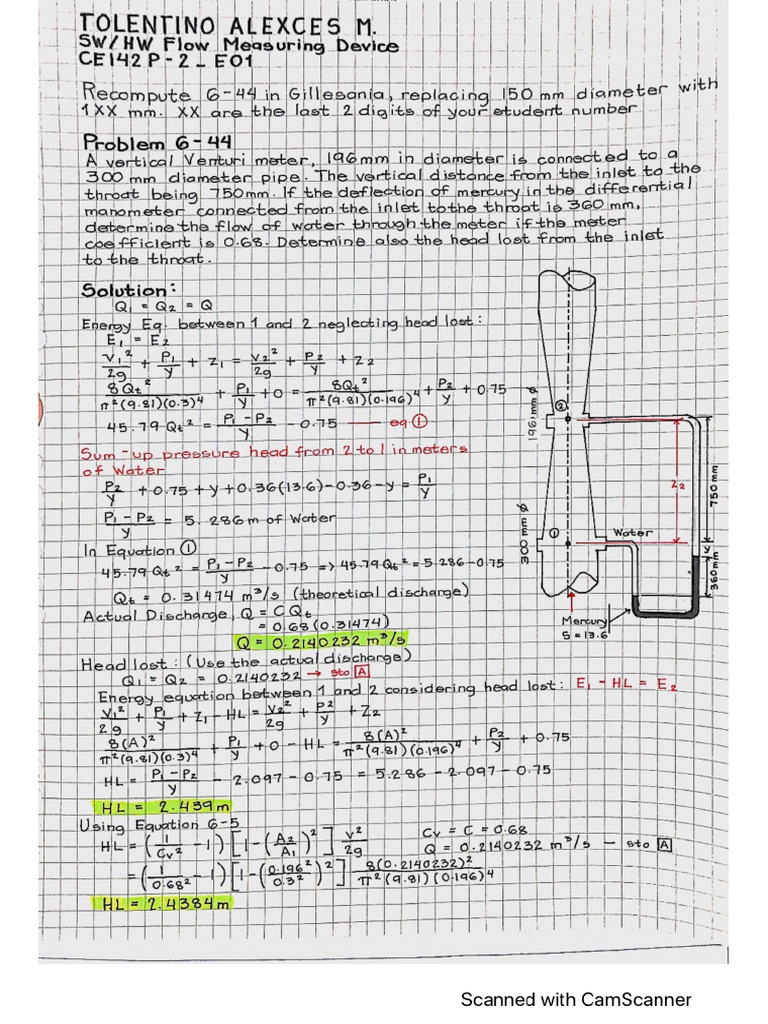 TOLENTINO ALEXCES M.
SW/HW Flow Measuring Device
CE142P-2_E01
Recompute 6-44 in Gillesania, replacing 150 mm diameter with
1XX mm. XX are the last 2 digits of your student number
Problem 6-44
A vertical Venturi meter, 196mm in diameter is connected to a
300 mm diameter pipe. The vertical distance from the inlet to the
throat being 750mm. If the deflection of mercury in the differential
manometer connected from the inlet to the throat is 360 mm,
determine the flow of water through the meter if the meter
coefficient is 0.68. Determine also the head lost from the inlet
to the throat.
Solution:
Q₁ = Q₂ = Q
Energy Eq. between 1 and 2 neglecting head lost:
E₁ = E₂
V₁²/2g + P₁/γ + Z₁ = V₂²/2g + P₂/γ + Z₂
8Qt²/π²(9.81)(0.3)⁴ + P₁/γ + 0 = 8Qt²/π²(9.81)(0.196)⁴ + P₂/γ + 0.75
45.79 Qt² = P₁-P₂/γ - 0.75 — eq ①
Sum-up pressure head from 2 to 1 in meters
of Water
P₂/γ + 0.75 + y + 0.36(13.6) - 0.36 - y = P₁/γ
P₁-P₂/γ = 5.286 m of Water
In Equation ①
45.79 Qt² = P₁-P₂/γ - 0.75 => 45.79 Qt² = 5.286 - 0.75
Qt = 0.31474 m³/s (theoretical discharge)
Actual Discharge, Q = CQt
= 0.68(0.31474)
Q = 0.2140232 m³/s
196mm ø
②
300 mm ø
①
Water
Z₂
750 mm
y
360mm
Mercury
S = 13.6
Head lost: (Use the actual discharge)
Q₁ = Q₂ = 0.2140232 → sto A
Energy equation between 1 and 2 considering head lost: E₁ - HL = E₂
V₁²/2g + P₁/γ + Z₁ - HL = V₂²/2g + P₂/γ + Z₂
8(A)²/π²(9.81)(0.3)⁴ + P₁/γ + 0 - HL = 8(A)²/π²(9.81)(0.196)⁴ + P₂/γ + 0.75
HL = P₁-P₂/γ - 2.097 - 0.75 = 5.286 - 2.097 - 0.75
HL = 2.439m
Using Equation 6-5
HL = (1/Cv² - 1) [1 - (A₂/A₁)²] V²/2g
Cv = C = 0.68
Q = 0.2140232 m³/s — sto A
= (1/0.68² - 1) [1 - (0.196²/0.3²)²] 8(0.2140232)²/π²(9.81)(0.196)⁴
HL = 2.4384m
Scanned with CamScanner